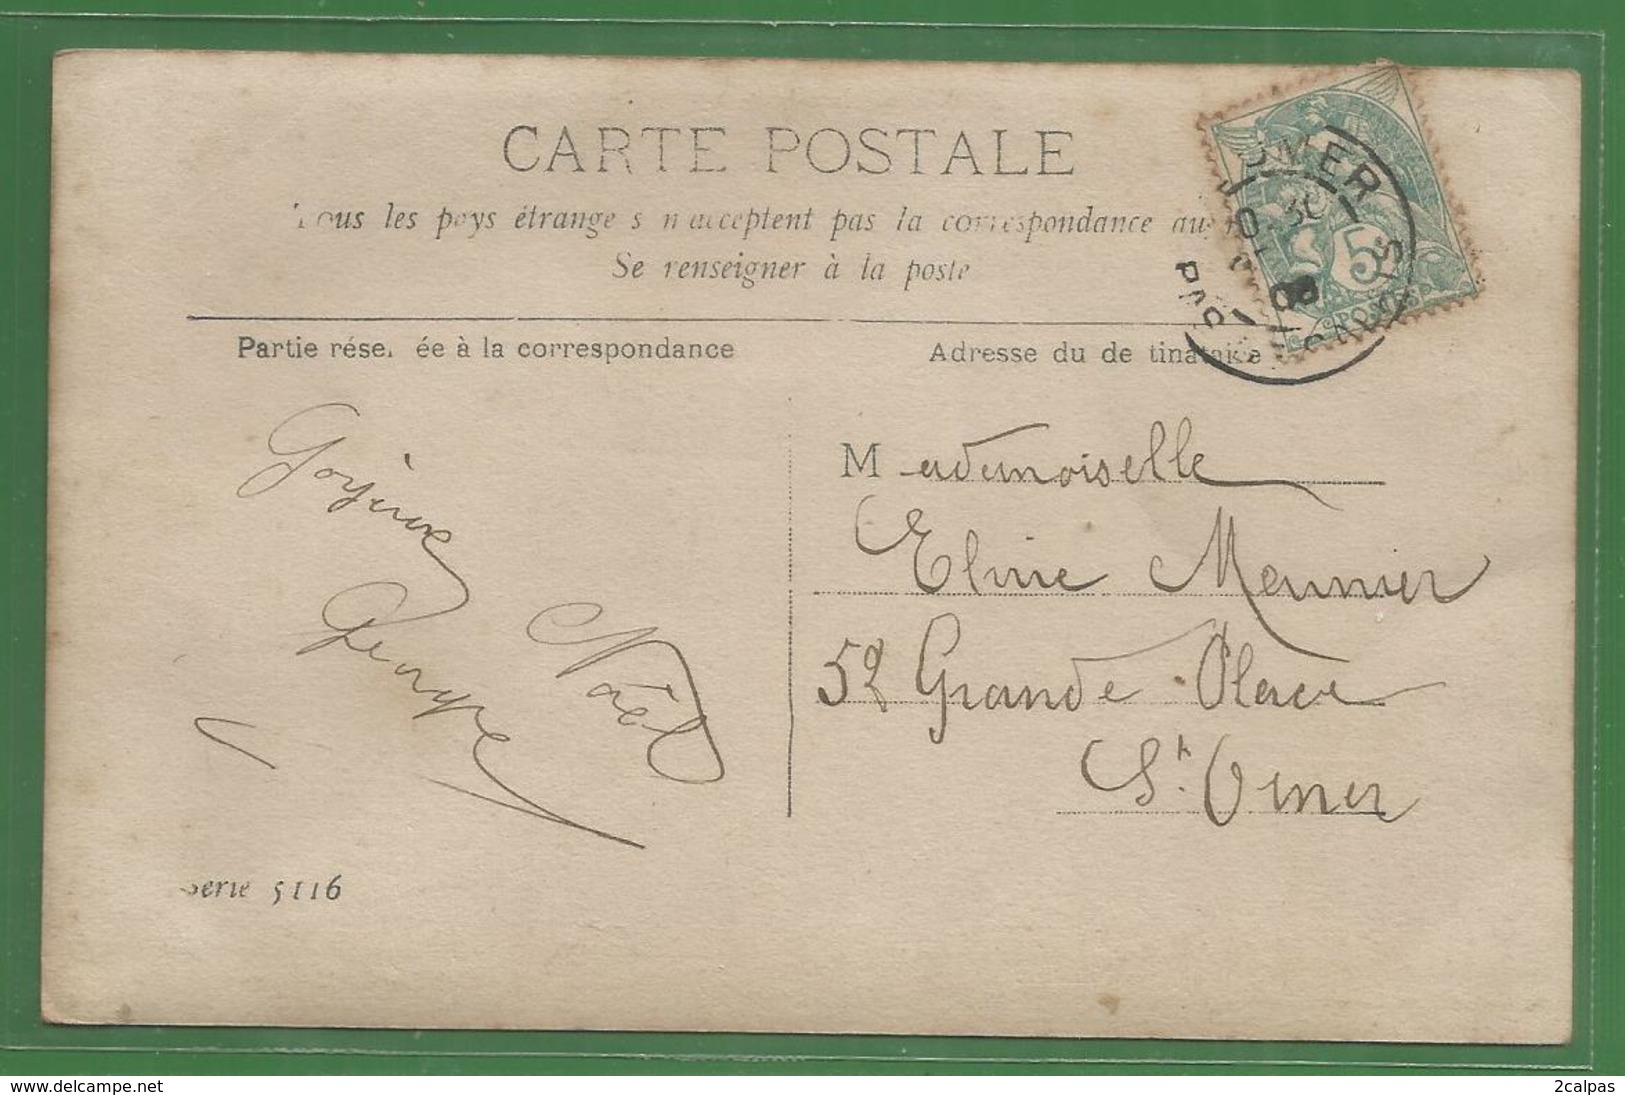 CARTE POSTALE
Tous les pays étrange s n'acceptent pas la correspondance au
Se renseigner à la poste
Partie rése. ée à la correspondance
Adresse du de tinataire
OMER
PAS
5
POSTES
Mademoiselle
Eline Meunier
52 Grande Place
St. Omer
Georges
Noël
Serie 5116
www.delcampe.net
2calpas